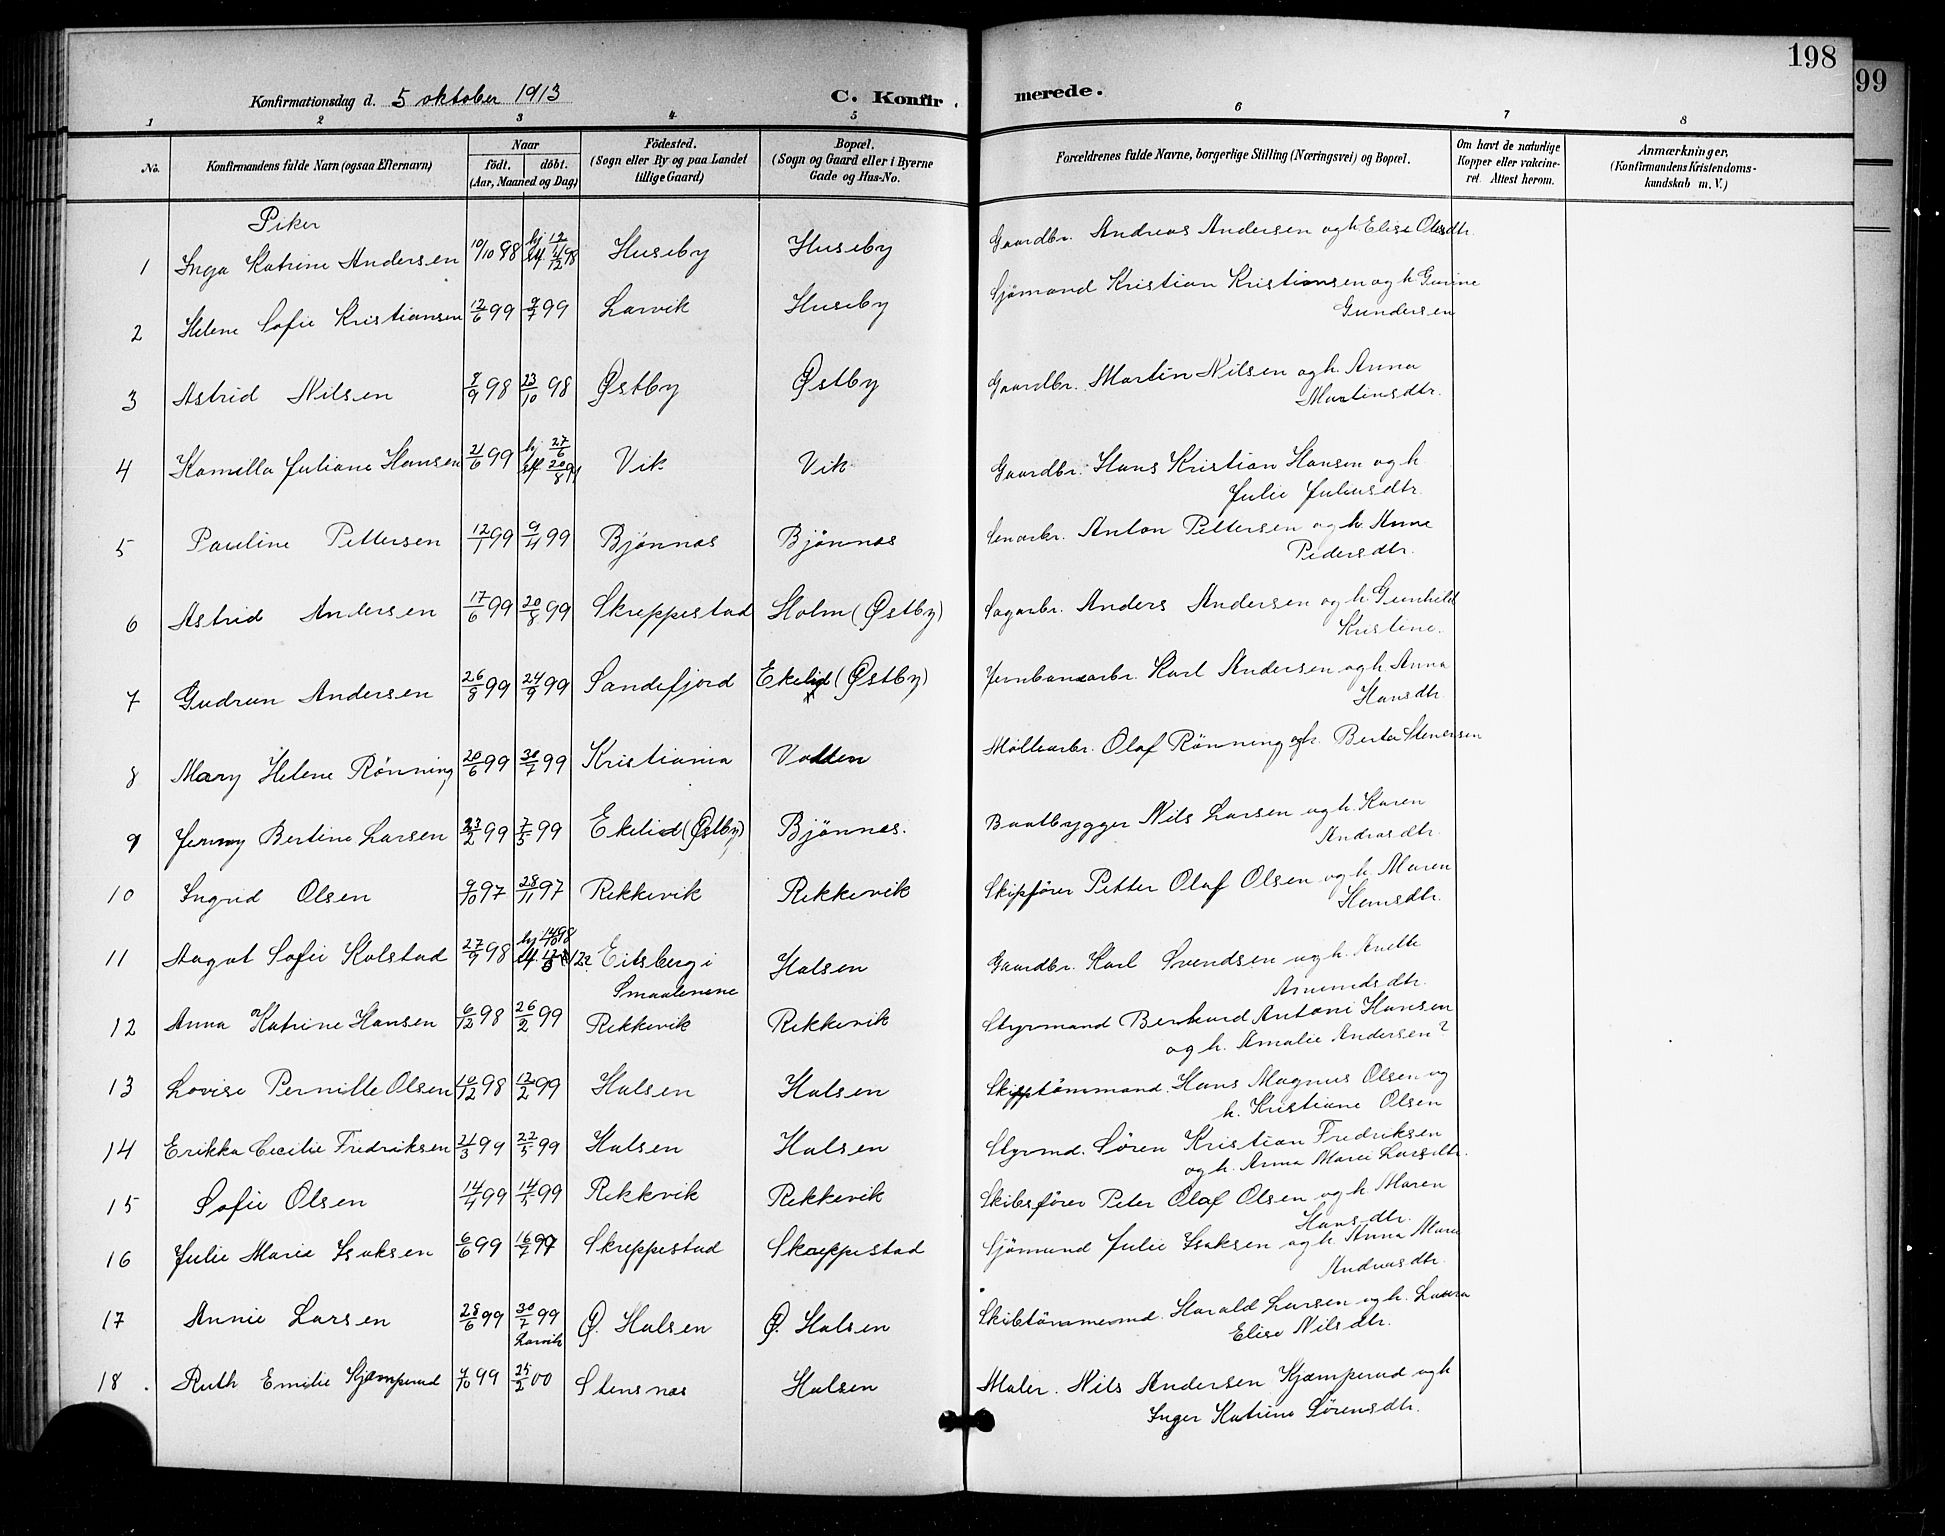 198
99
Konfirmationsdag d. 5 oktober 1913
C. Konfirmerede.
1 2 3 4 5 6 7 8
No. Konfirmandens fulde Navn (ogsaa Efternavn) Naar født. døbt. (Aar, Maaned og Dag) Fødested. (Sogn eller By og paa Landet tillige Gaard) Bopæl. (Sogn og Gaard eller i Byerne Gade og Hus-No. Forældrenes fulde Navne, borgerlige Stilling (Næringsvei) og Bopæl. Om havt de naturlige Kopper eller vakcineret. Attest herom. Anmærkninger, (Konfirmandens Kristendomskundskab m. V.)
Piker
1 Inga Katrine Andersen 10/10 98 hj 12/11 98 Huseby Huseby Gaardbr. Andreas Andersen og h. Elise Olsdtr.
2 Helene Sofie Kristiansen 12/6 99 9/7 99 Larvik Huseby Sjömand Kristian Kristiansen og h. Gunine
Gundersen
3 Astrid Nilsen 8/9 98 23/10 98 Østby Østby Gaardbr. Martin Nilsen og h. Anna
Martinsdtr.
4 Kamilla Juliane Hansen 21/6 99 hj 27/6 stf 20/8 99 Vik Vik Gaardbr. Hans Kristian Hansen og h
Julie Juliusdtr.
5 Pauline Pettersen 12/1 99 9/4 99 Bjönnes Bjönnes Anton Pettersen og h. Anne
Pedersdtr.
6 Astrid Andersen 17/6 99 20/8 99 Skreppestad Holm (Østby) Sagarbr. Anders Andersen og h. Gunhild
Kristine.
7 Gudrun Andersen 26/8 99 24/9 99 Sandefjord Ekelid (Østby) Jernbanearbr. Karl Andersen og h. Anna
Hansdtr.
8 Mary Helene Rönning 20/6 99 30/7 99 Kristiania Vadden Möllearbr. Olaf Rönning og h. Berta Stenersen
9 Jenny Bertine Larsen 23/2 99 7/5 99 Ekelid (Østby) Bjönnes. Baatbygger Nils Larsen og h. Karen
Andreasdtr.
10 Ingrid Olsen 9/10 97 28/11 97 Rekkevik Rekkevik Skipförer Petter Olaf Olsen og h. Maren
Hansdtr.
11 Aagot Sofie Kolstad 27/9 98 Eidsberg i Halsen Gaardbr. Karl Svendsen og h. Anette
Smaalenene Amundsdtr.
12 Anna Katrine Hansen 6/12 98 26/2 99 Rekkevik Rekkevik Styrmand Bernhard Antoni Hansen
og h. Amalie Andersen?
13 Lovise Pernille Olsen 10/12 98 12/2 99 Halsen Halsen Skipstömmand. Hans Magnus Olsen og
h. Kristiane Olsen
14 Erikka Cecilie Fredriksen 21/3 99 22/5 99 Halsen Halsen Styrmd. Sören Kristian Fredriksen
og h. Anna Marie Larsdtr.
15 Sofie Olsen 14/4 99 14/5 99 Rekkevik Rekkevik Skibsförer Peter Olaf Olsen og h. Maren
Hansdtr.
16 Julie Marie Isaksen 6/6 99 16/7 99 Skreppestad Skreppestad Sjömand Julie Isaksen og h. Anna Marie
Andreasdtr.
17 Annie Larsen 28/6 99 30/7 99 Larvik Ø. Halsen Ø. Halsen Skibstömmermd. Harald Larsen og h. Laura
Elise Nilsdtr.
18. Ruth Emilie Kjæmperud 4/10 99 25/2 00 Stensnes Halsen Maler. Nils Andersen Kjæmperud og h
Inger Katrine Sörensdtr.